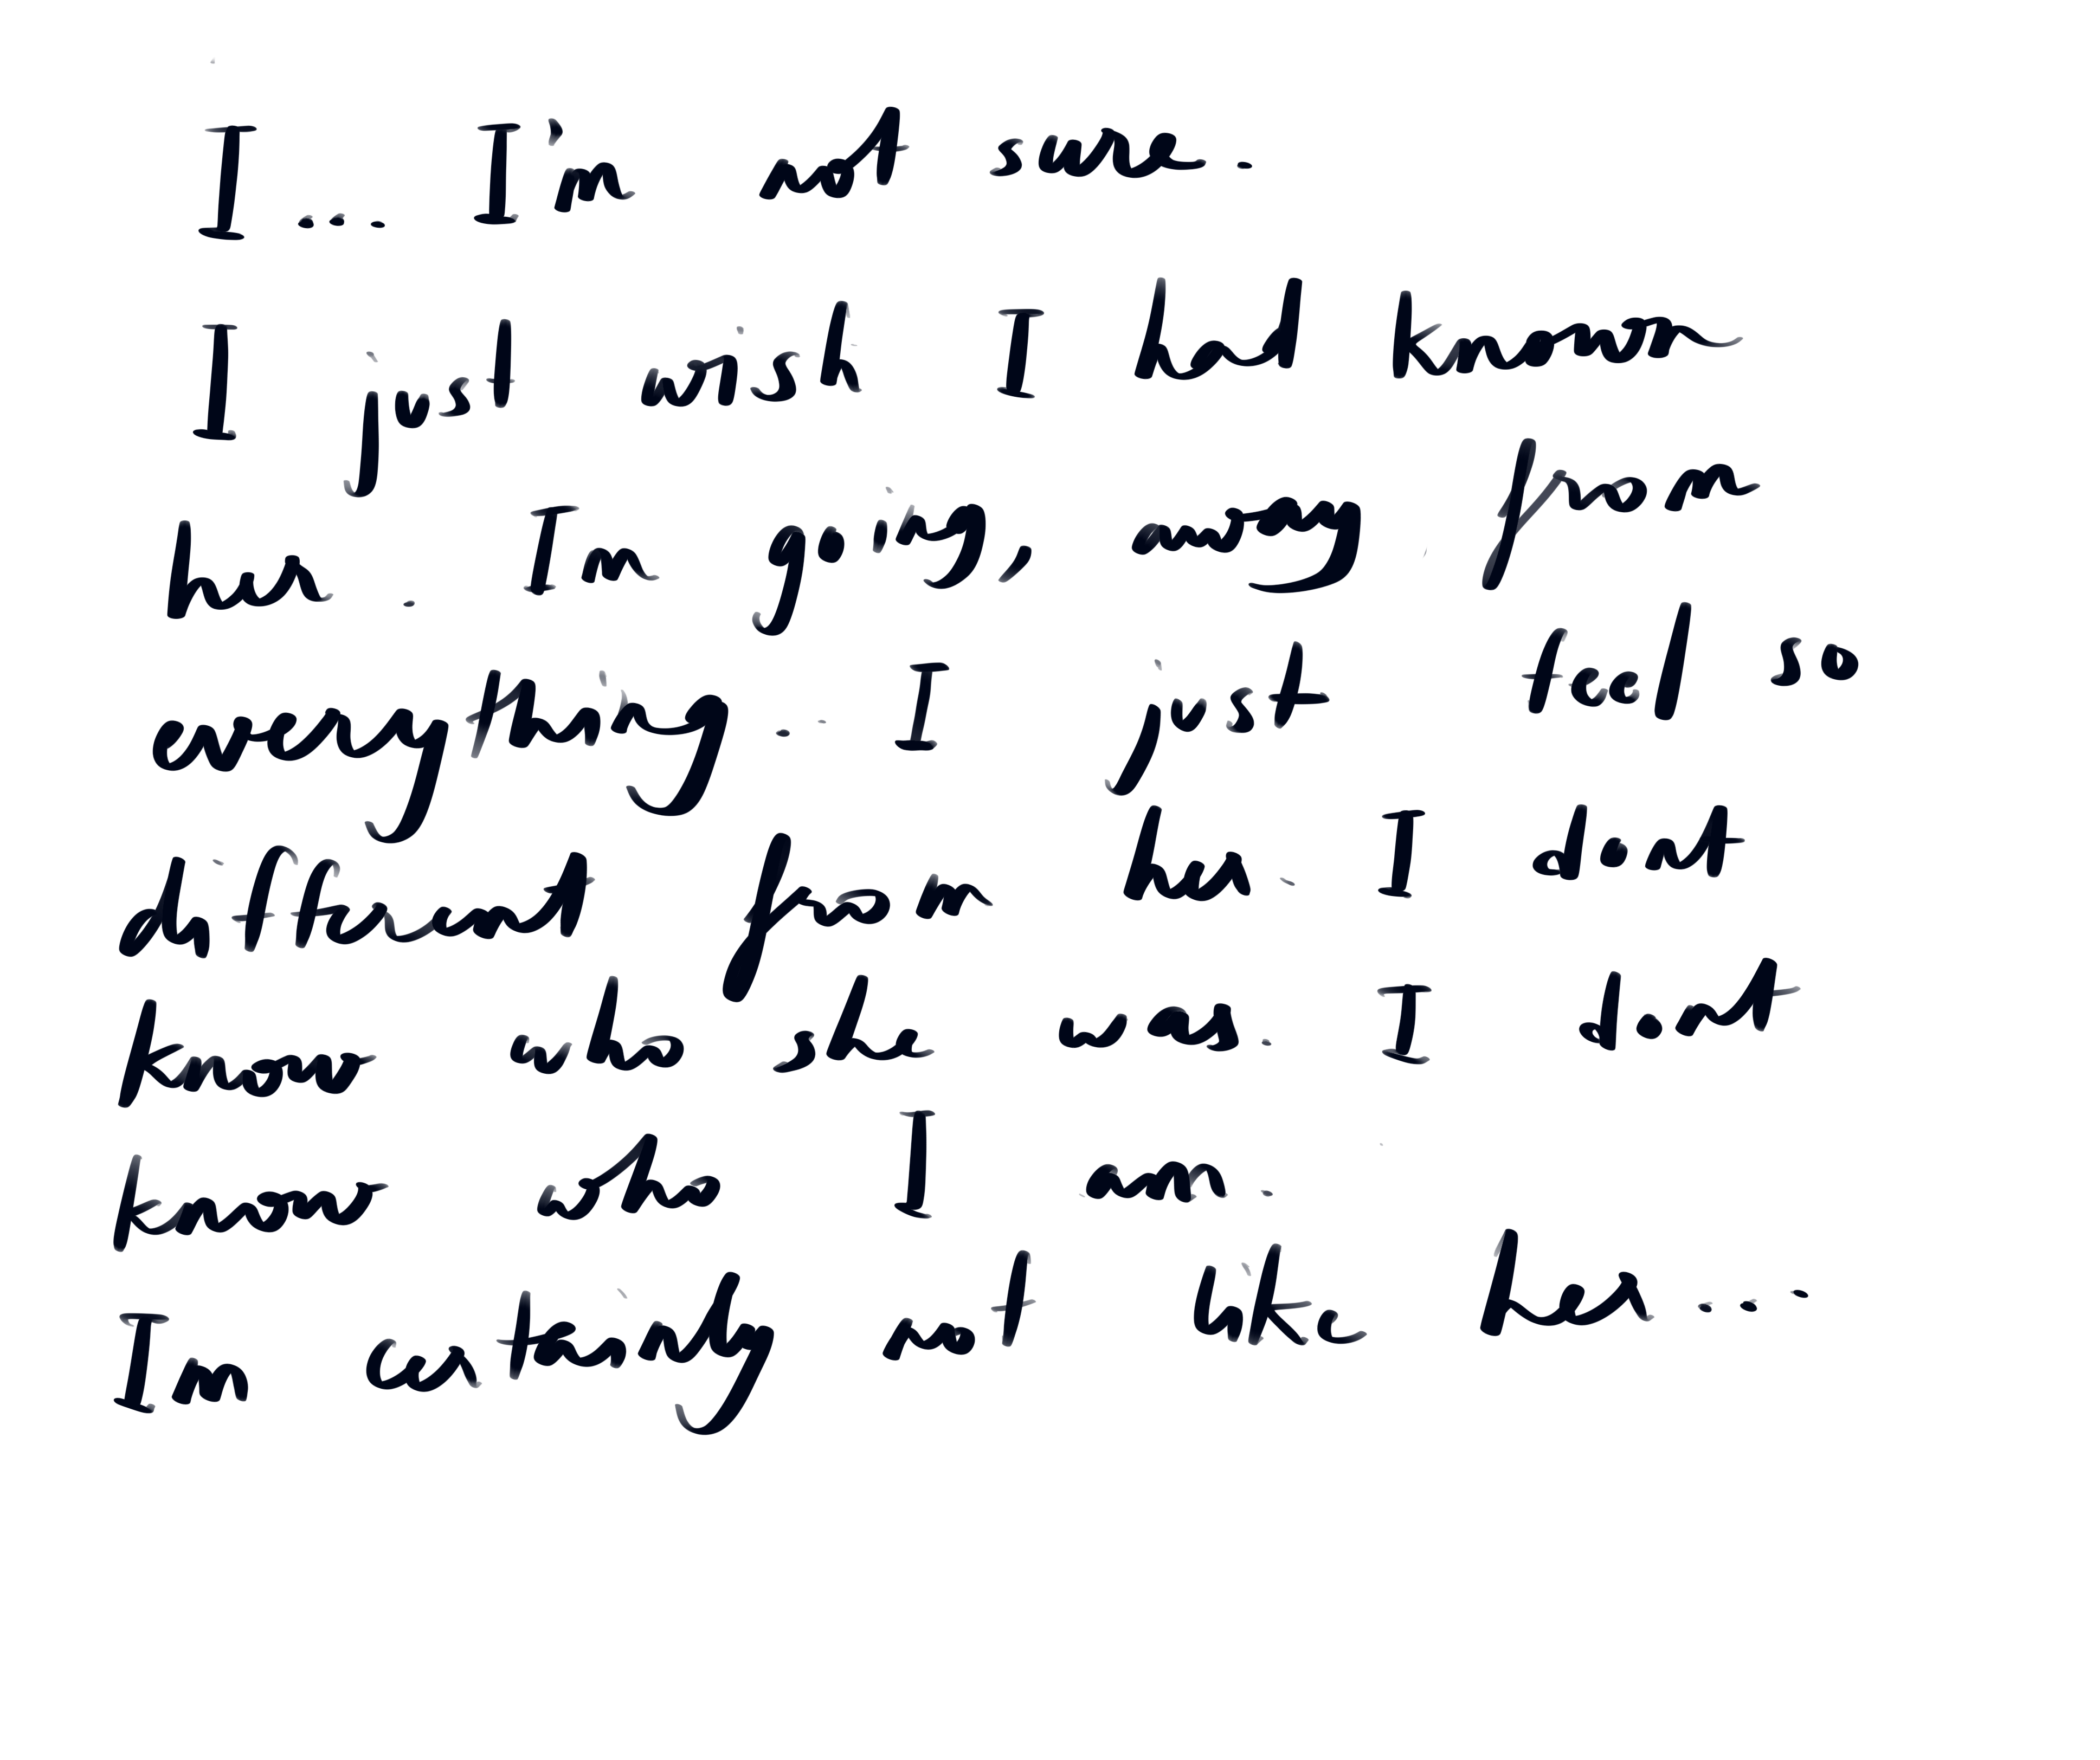 I... I'm not sure.
I just wish I had known
her. Im going, away from
everything.. I just feel so
different from her. I dont
know who she was. I dont
know who I am.
Im certainly not like her...